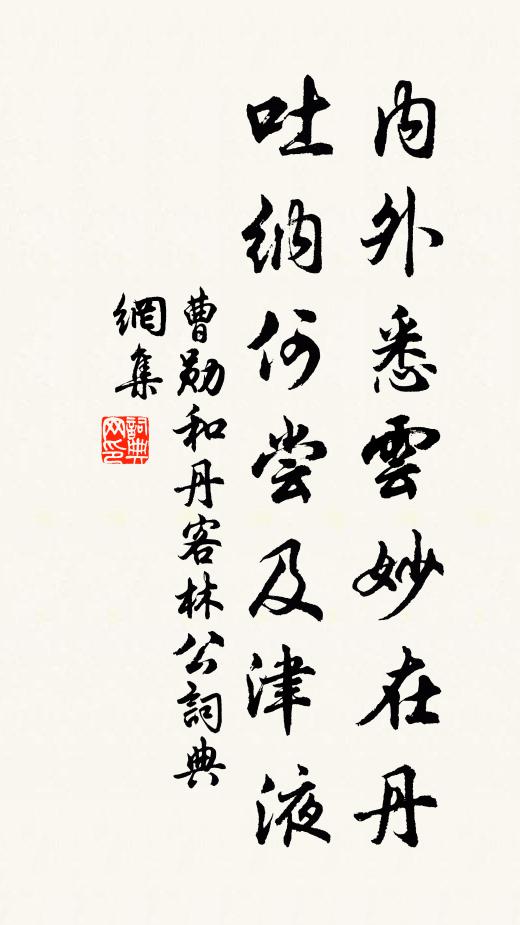 内外悉雲妙在丹
吐纳何尝及津液
曹勋和丹客林公詞典
網集
詞典
网印